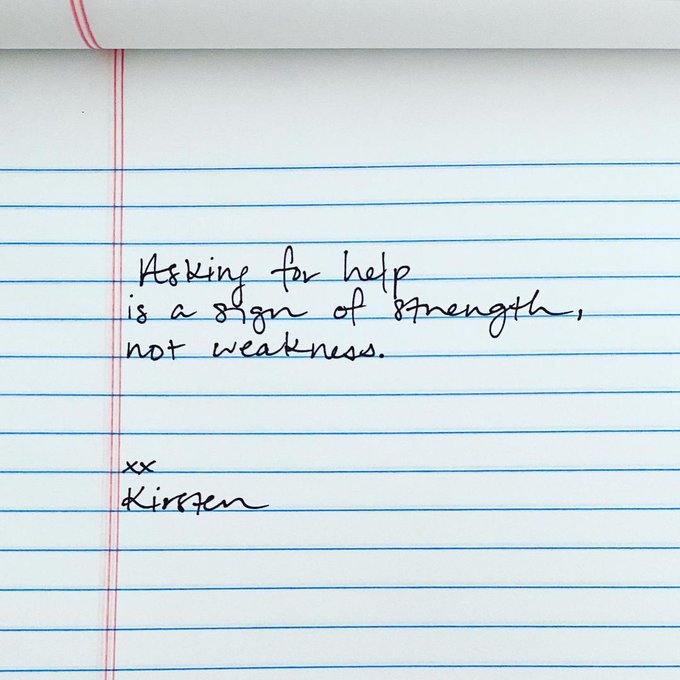 Asking for help
is a sign of strength,
not weakness.
xx
Kirsten